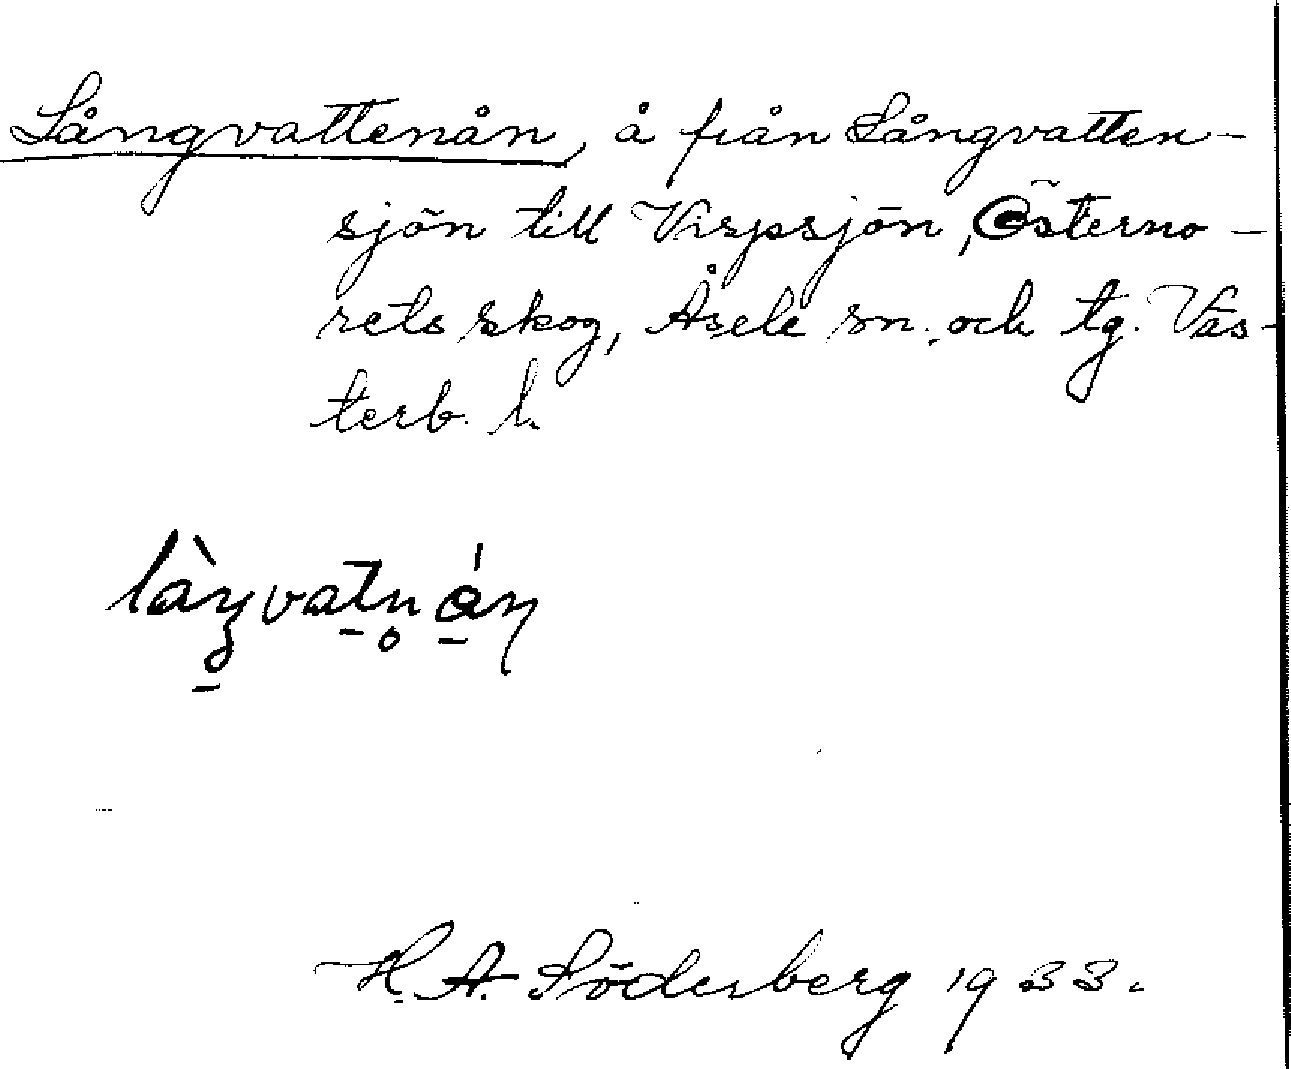 Långvattenån, å från Långvatten-
sjön till Virpsjön, Österno-
rets skog, Åsele sn. och tg. Väs-
terb. l.
H. A. Söderberg 1933.